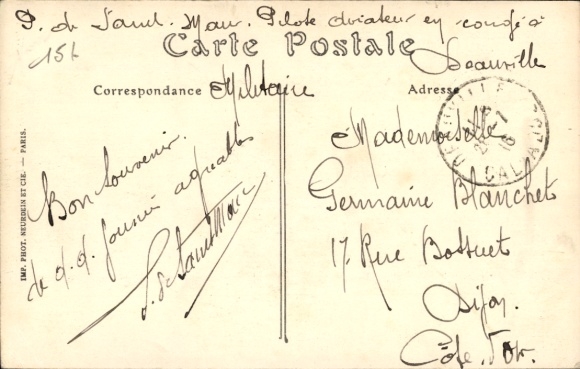 P. de Saint-Marc. Pilote aviateur en congé à
Deauville
15t
Carte Postale
Correspondance
Militaire
Adresse
DEAUVILLE
CALVADOS
18
Bon Souvenir
de q.q. journées agréables
P. de Saint Marc
Mademoiselle
Germaine Blanchet
17 Rue Bossuet
Dijon
Côte-d'Or.
IMP. PHOT. NEURDEIN ET CIE. — PARIS.